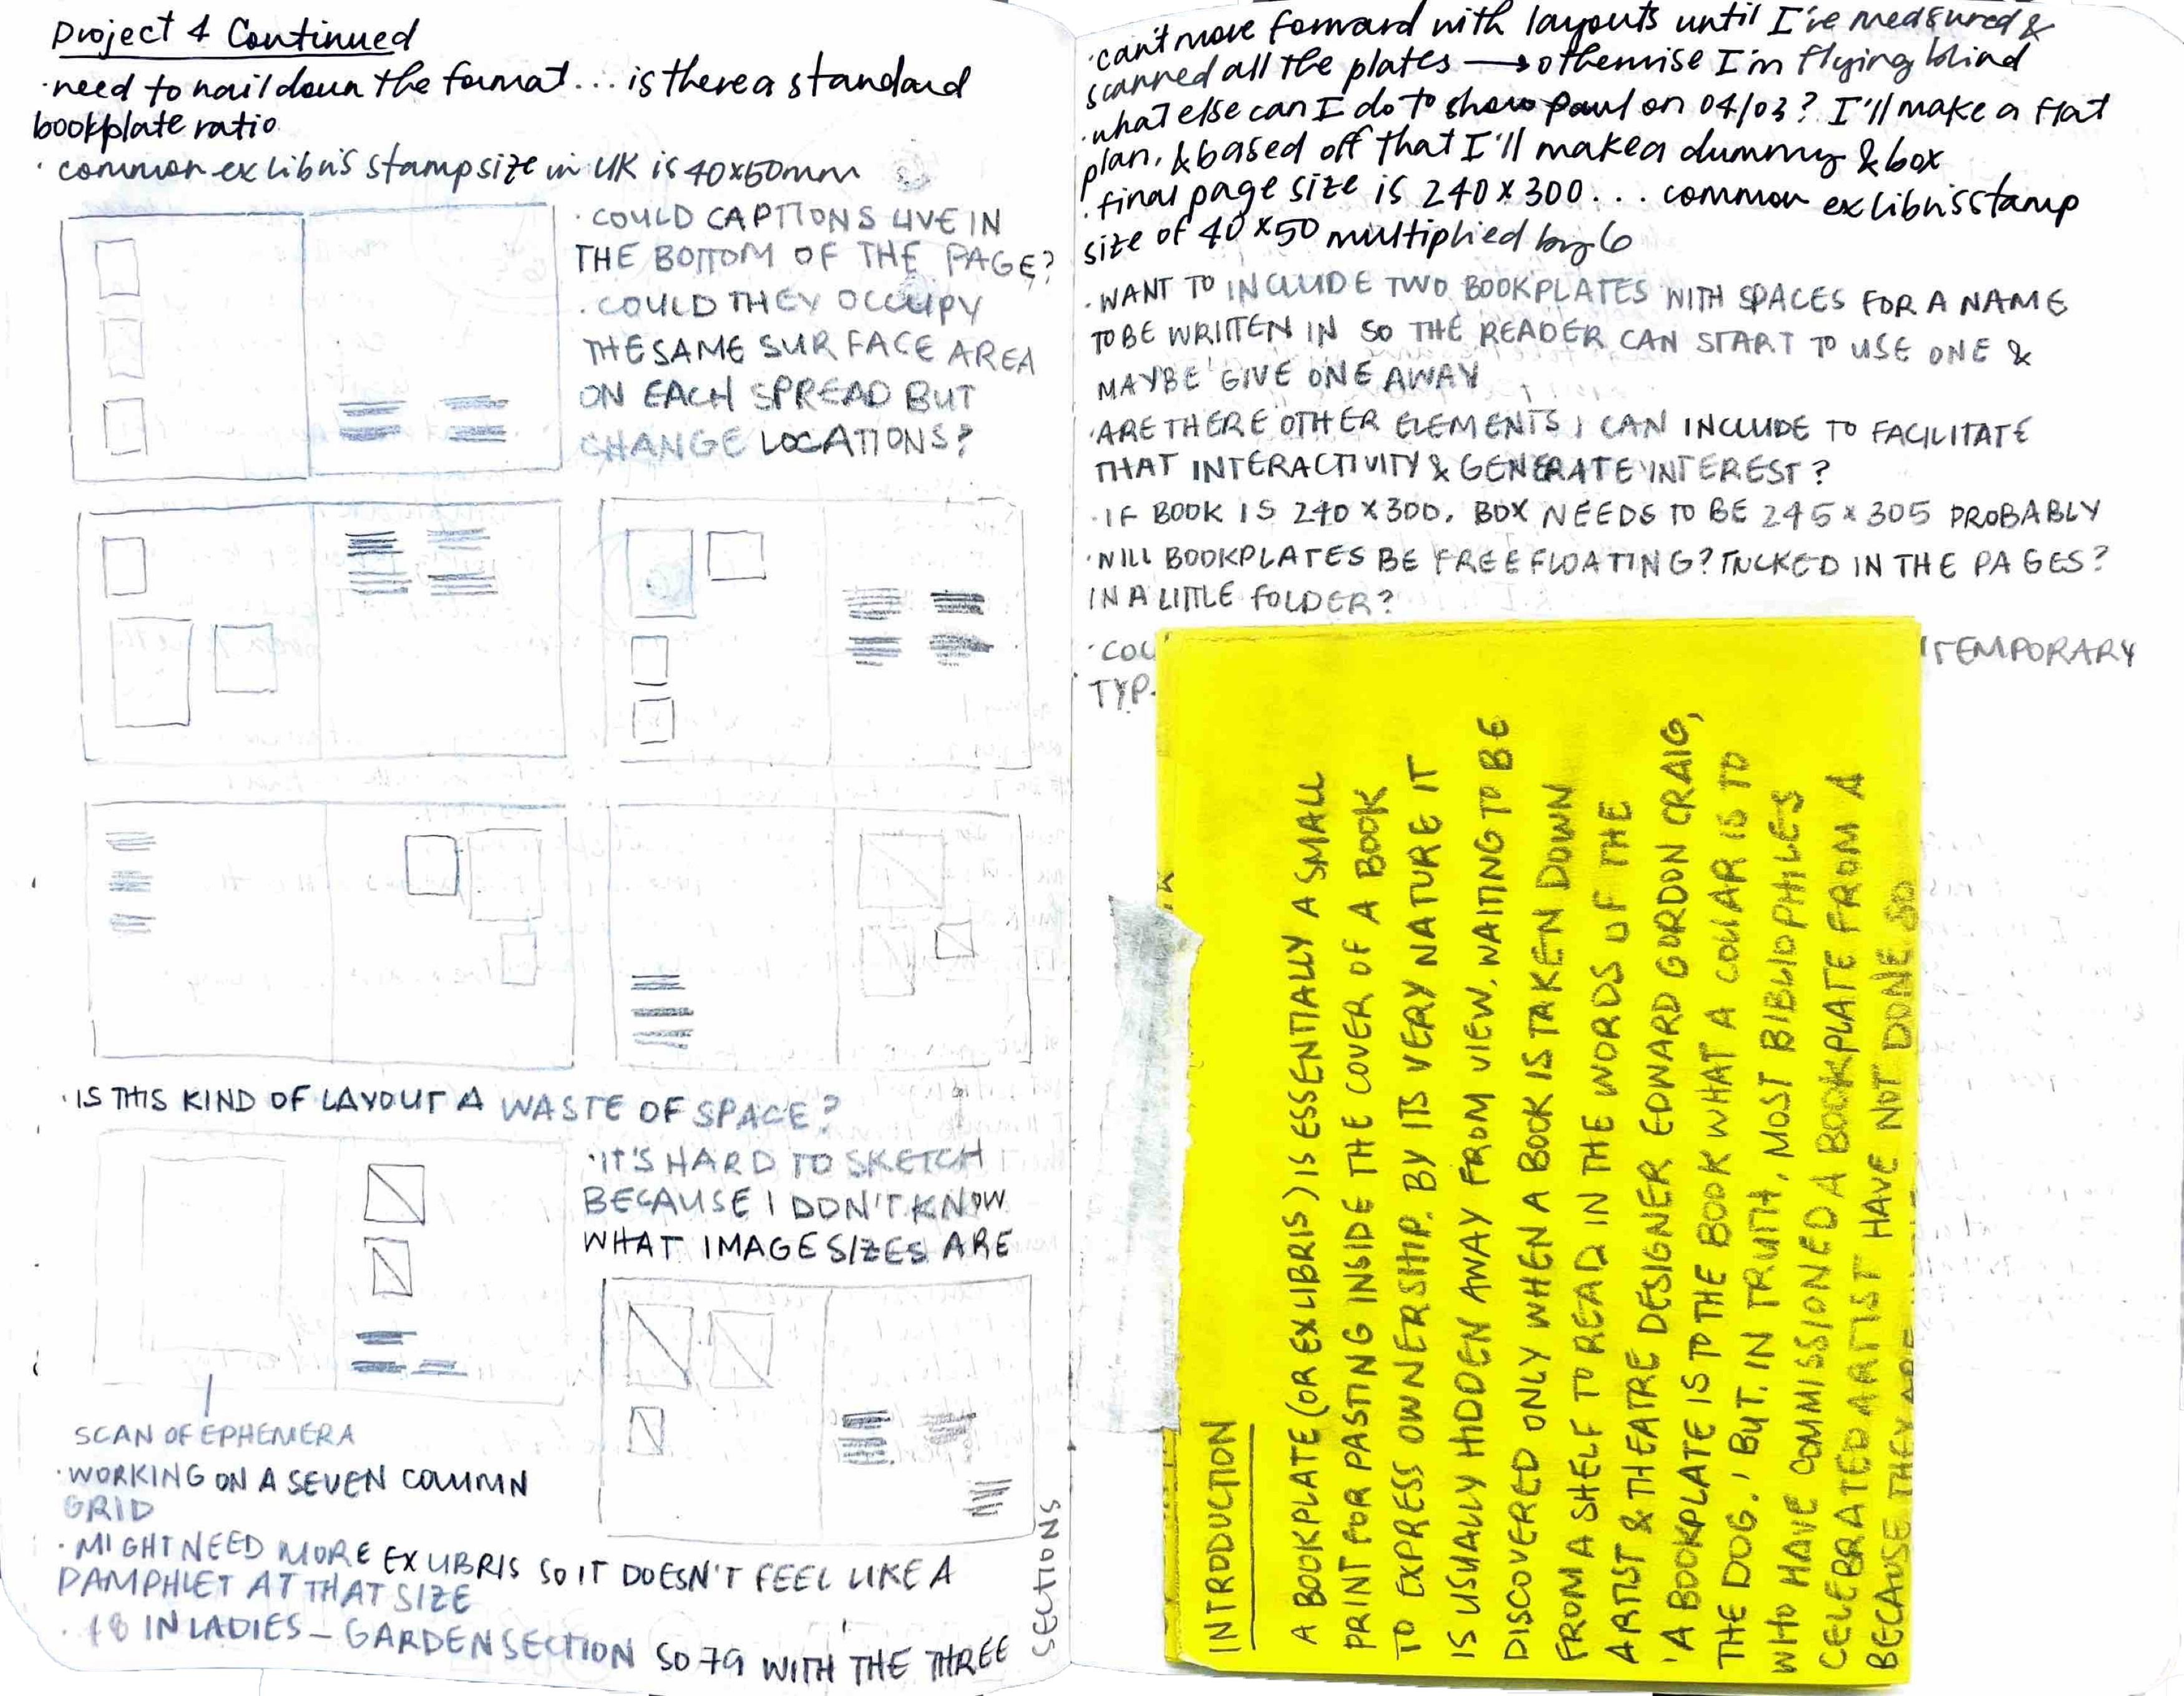 Project 4 Continued
·need to nail down the format... is there a standard
bookplate ratio
· common ex libris stamp size in UK is 40x50mm
· COULD CAPTIONS LIVE IN
THE BOTTOM OF THE PAGE?
· COULD THEY OCCUPY
THE SAME SURFACE AREA
ON EACH SPREAD BUT
CHANGE LOCATIONS?
· IS THIS KIND OF LAYOUT A WASTE OF SPACE?
·IT'S HARD TO SKETCH
BECAUSE I DON'T KNOW
WHAT IMAGE SIZES ARE
SCAN OF EPHEMERA
·WORKING ON A SEVEN COLUMN
GRID
·MIGHT NEED MORE EX LIBRIS SO IT DOESN'T FEEL LIKE A
PAMPHLET AT THAT SIZE
· 18 IN LADIES — GARDEN SECTION SO 79 WITH THE THREE
SECTIONS
·can't move forward with layouts until I've measured &
scanned all the plates → otherwise I'm flying blind
·what else can I do to show Paul on 04/03? I'll make a flat
plan, & based off that I'll make a dummy & box
·final page size is 240 x 300... common ex libris stamp
size of 40 x 50 multiplied by 6
·WANT TO INCLUDE TWO BOOKPLATES WITH SPACES FOR A NAME
TO BE WRITTEN IN SO THE READER CAN START TO USE ONE &
MAYBE GIVE ONE AWAY
·ARE THERE OTHER ELEMENTS I CAN INCLUDE TO FACILITATE
THAT INTERACTIVITY & GENERATE INTEREST?
·IF BOOK IS 240 x 300, BOX NEEDS TO BE 245 x 305 PROBABLY
·WILL BOOKPLATES BE FREE FLOATING? TUCKED IN THE PAGES?
IN A LITTLE FOLDER?
·COU TEMPORARY
TYP
INTRODUCTION
A BOOKPLATE (OR EX LIBRIS) IS ESSENTIALLY A SMALL
PRINT FOR PASTING INSIDE THE COVER OF A BOOK
TO EXPRESS OWNERSHIP. BY ITS VERY NATURE IT
IS USUALLY HIDDEN AWAY FROM VIEW, WAITING TO BE
DISCOVERED ONLY WHEN A BOOK IS TAKEN DOWN
FROM A SHELF TO READ IN THE WORDS OF THE
ARTIST & THEATRE DESIGNER EDWARD GORDON CRAIG,
'A BOOKPLATE IS TO THE BOOK WHAT A COLLAR IS TO
THE DOG.' BUT, IN TRUTH, MOST BIBLIOPHILES
WHO HAVE COMMISSIONED A BOOKPLATE FROM A
CELEBRATED ARTIST HAVE NOT DONE SO
BECAUSE THEY ARE